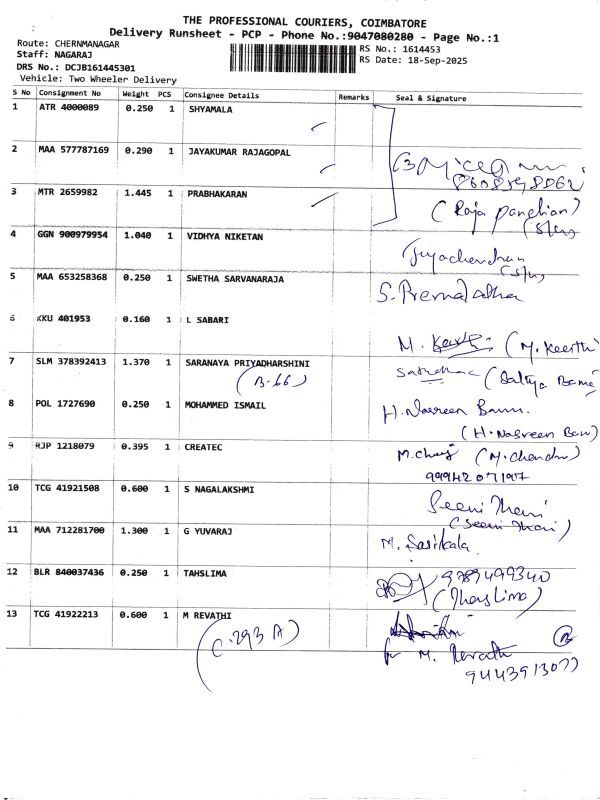 THE PROFESSIONAL COURIERS, COIMBATORE
Delivery Runsheet - PCP - Phone No.:9047080280 - Page No.:1
Route: CHERNMANAGAR
RS No.: 1614453
Staff: NAGARAJ
RS Date: 18-Sep-2025
DRS No.: DCJB161445301
Vehicle: Two Wheeler Delivery
S No Consignment No Weight PCS Consignee Details Remarks Seal & Signature
1 ATR 4000089 0.250 1 SHYAMALA
2 MAA 577787169 0.290 1 JAYAKUMAR RAJAGOPAL
3 MTR 2659982 1.445 1 PRABHAKARAN
(Raja pandian)
4 GGN 900979954 1.040 1 VIDHYA NIKETAN
5 MAA 653258368 0.250 1 SWETHA SARVANARAJA
S. Prema Latha
6 KKU 401953 0.160 1 L SABARI
M. (M. Keerthi
7 SLM 378392413 1.370 1 SARANAYA PRIYADHARSHINI
(B-66) (Sathya Bama)
8 POL 1727690 0.250 1 MOHAMMED ISMAIL H. Nasreen Banu
(H. Nasreen Banu
9 RJP 1218079 0.395 1 CREATEC (M. chandru)
9994207197
10 TCG 41921508 0.600 1 S NAGALAKSHMI
Seeni Thani
(Seeni Thani)
11 MAA 712281700 1.300 1 G YUVARAJ
M. Sasikala
12 BLR 840037436 0.250 1 TAHSLIMA 9789499340
(Thaslima)
13 TCG 41922213 0.600 1 M REVATHI
(C.293 A) M. Revathi
9443913077